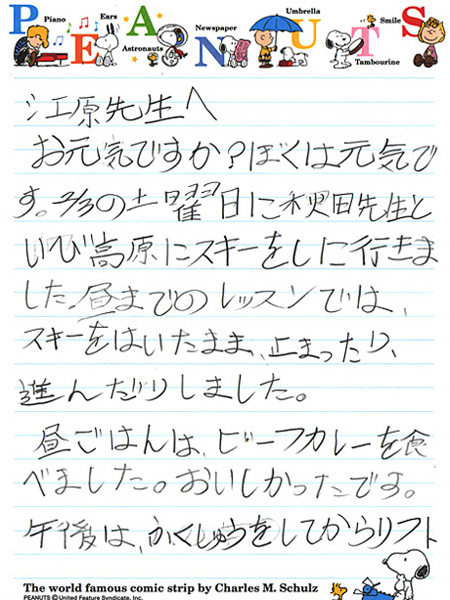 Piano
Ears
Astronauts
Newspaper
Umbrella
Tambourine
Smile
PEANUTS
江原先生へ
お元気ですか?ぼくは元気で
す。2/3の土曜日に秋田先生と
いび高原にスキーをしに行きま
した。昼までのレッスンでは、
スキーをはいたまま、止まったり、
進んだりしました。
昼ごはんは、ビーフカレーを食
べました。おいしかったです。
午後は、ふくしゅうをしてからリフト
The world famous comic strip by Charles M. Schulz
PEANUTS © United Feature Syndicate, Inc.